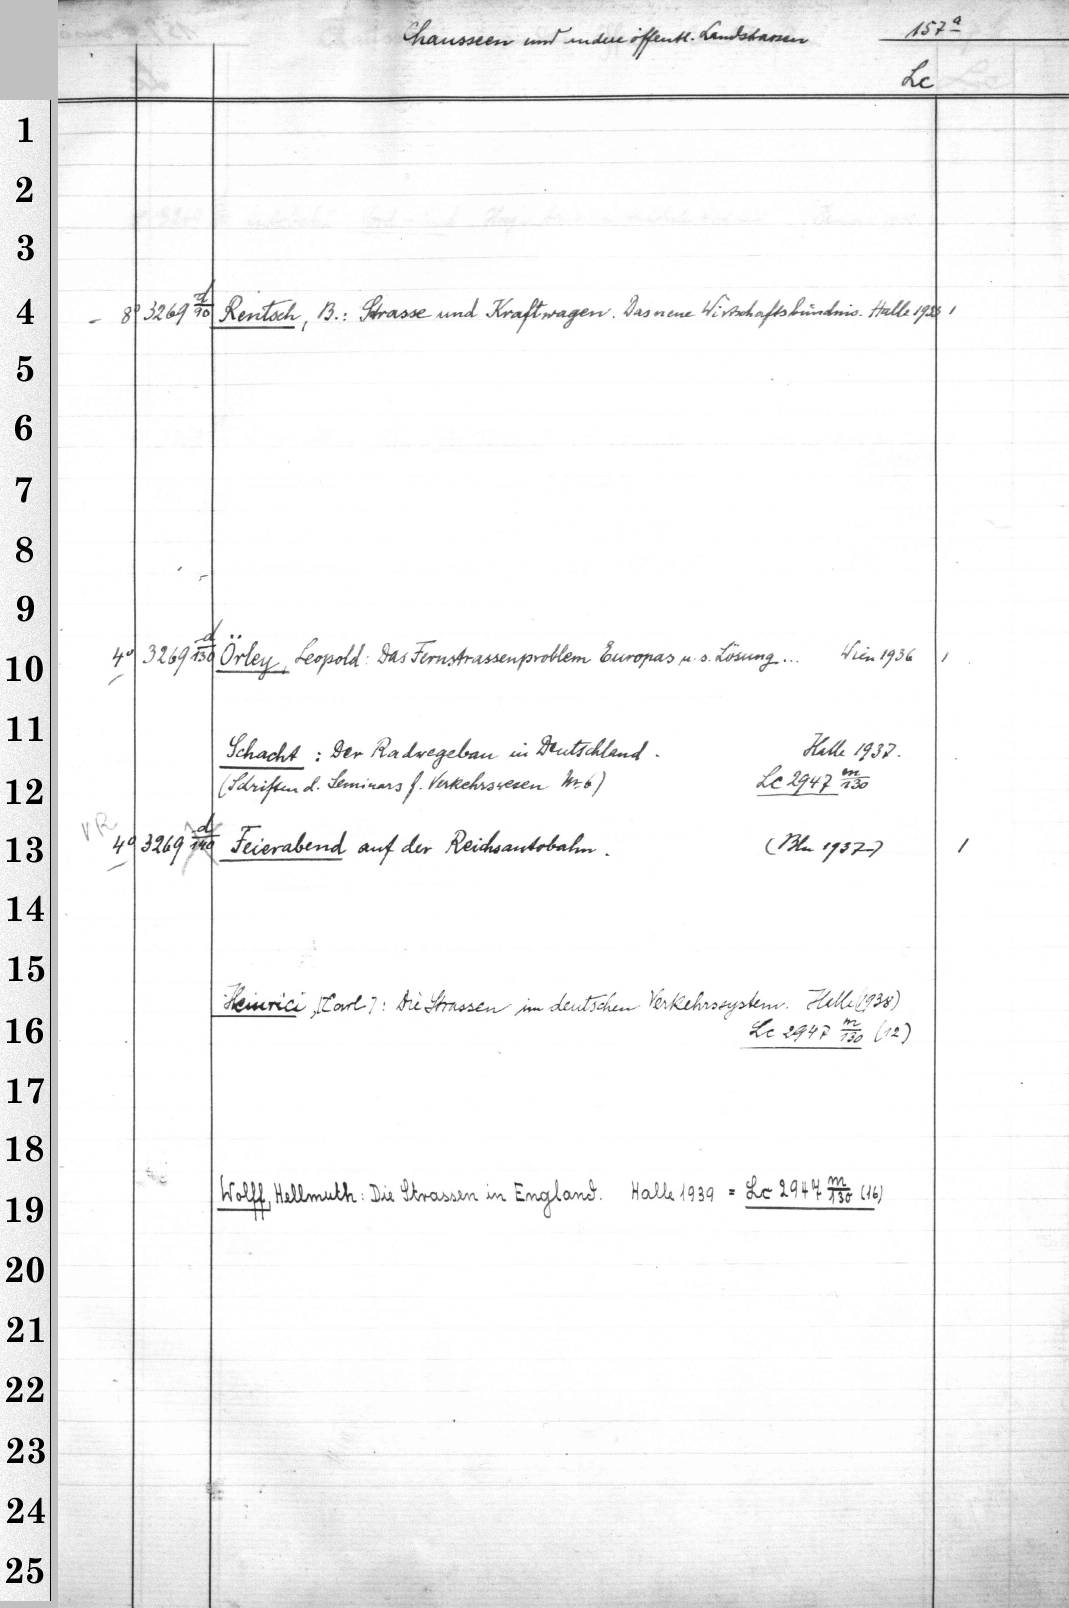 Chausseen und andere öffentl. Landstrassen 157a
Lc
1
2
3
4 8° 3269 d/90 Rentsch, B.: Strasse und Kraftwagen. Das neue Wirtschaftsbündnis. Halle 1933 1
5
6
7
8
9
10 4° 3269 d/130 Örley, Leopold: Das Fernstrassenproblem Europas u. s. Lösung... Wien 1936 1
11 Schacht: Der Radwegebau in Deutschland. Halle 1937.
12 (Schriften d. Seminars f. Verkehrswesen Nr. 6) Lc 2947 m/130
VR
13 4° 3269 d/140 Feierabend auf der Reichsautobahn. (Bln 1937) 1
14
15
Heinrici, [Carl]: Die Strassen im deutschen Verkehrssystem. Halle (1938)
16 Lc 2947 m/130 (12)
17
18
19 Wolff, Hellmuth: Die Strassen in England. Halle 1939 = Lc 2947 m/130 (16)
20
21
22
23
24
25